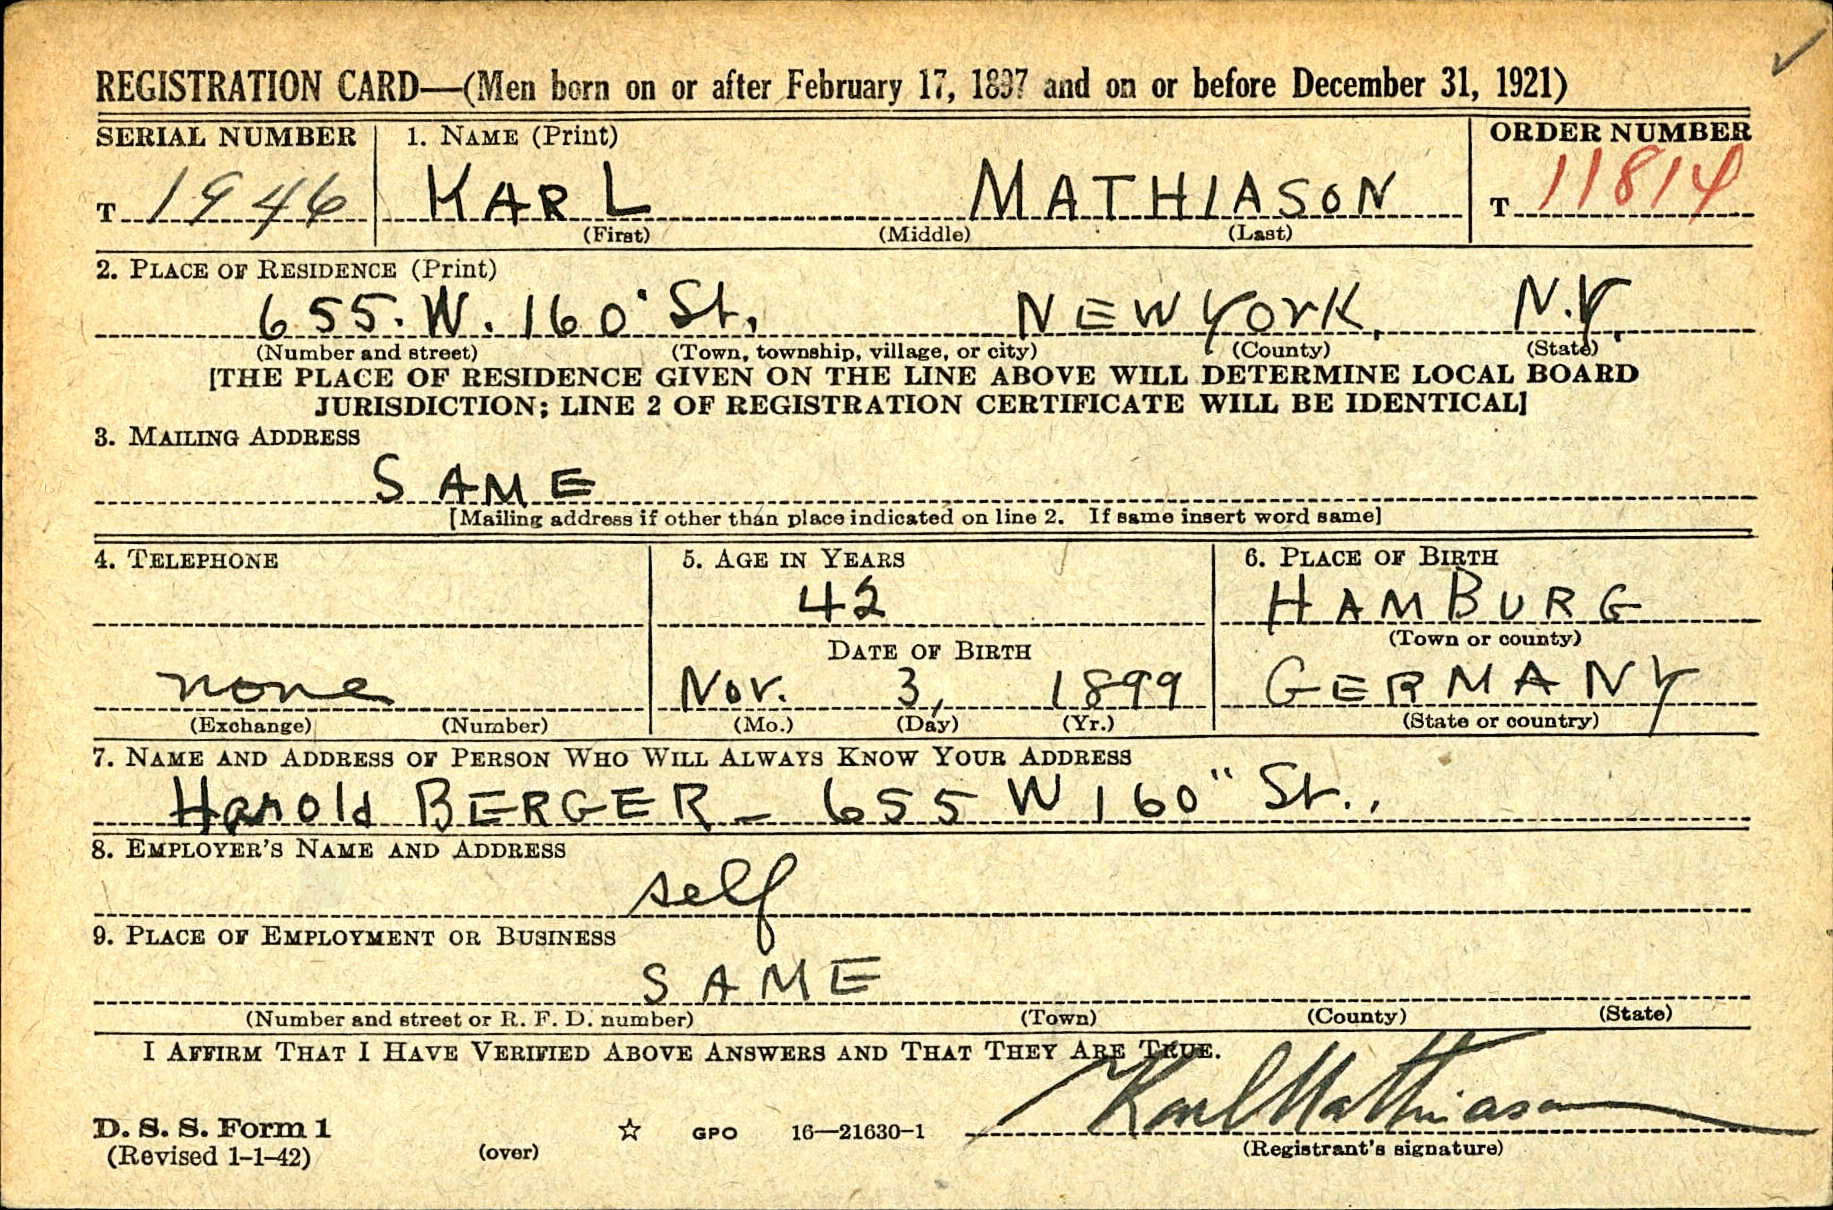 REGISTRATION CARD—(Men born on or after February 17, 1897 and on or before December 31, 1921)
SERIAL NUMBER 1. NAME (Print) ORDER NUMBER
T 1946 KARL MATHIASON T 11814
(First) (Middle) (Last)
2. PLACE OF RESIDENCE (Print)
655. W. 160" St, NEW YORK, N.Y.
(Number and street) (Town, township, village, or city) (County) (State)
[THE PLACE OF RESIDENCE GIVEN ON THE LINE ABOVE WILL DETERMINE LOCAL BOARD
JURISDICTION; LINE 2 OF REGISTRATION CERTIFICATE WILL BE IDENTICAL]
3. MAILING ADDRESS
SAME
[Mailing address if other than place indicated on line 2. If same insert word same]
4. TELEPHONE 5. AGE IN YEARS 6. PLACE OF BIRTH
42 HAMBURG
DATE OF BIRTH (Town or county)
none Nov. 3, 1899 GERMANY
(Exchange) (Number) (Mo.) (Day) (Yr.) (State or country)
7. NAME AND ADDRESS OF PERSON WHO WILL ALWAYS KNOW YOUR ADDRESS
Harold BERGER - 655 W 160" St..
8. EMPLOYER'S NAME AND ADDRESS
self
9. PLACE OF EMPLOYMENT OR BUSINESS
SAME
(Number and street or R. F. D. number) (Town) (County) (State)
I AFFIRM THAT I HAVE VERIFIED ABOVE ANSWERS AND THAT THEY ARE TRUE.
Karl Mathiason
D. S. S. Form 1 GPO 16—21630-1
(Revised 1-1-42) (over) (Registrant's signature)